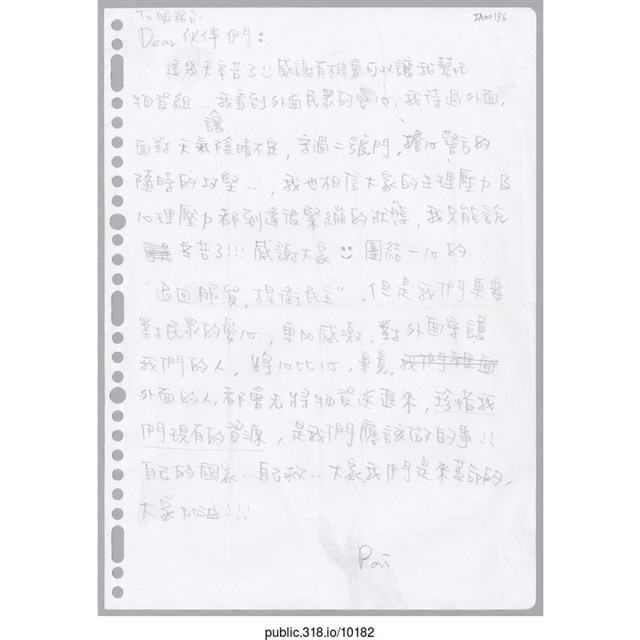 IA00186
Dear 伙伴們:
這幾天辛苦了!! 感謝有機會可以讓我幫忙
物資組... 我看到外面民眾的愛心, 我待過外面,
讓
面對天氣陰晴不定, 守過二號門, 擔心警方的
隨時的攻堅..., 我也相信大家的生理壓力及
心理壓力都到達很緊繃的狀態, 我只能說
辛苦了!!! 感謝大家 團結一心的
"退回服貿, 捍衛民主", 但是我們更要
對民眾的愛心, 更加感激, 對外面守護
我們的人, 將心比心, 畢竟, 我們裡面
外面的人, 都會先將物資送進來, 珍惜我
們現有的資源, 是我們應該做的事!!
自己的國家...自己救... 大家我們是來革命的,
大家加油!!!
Pai
public.318.io/10182